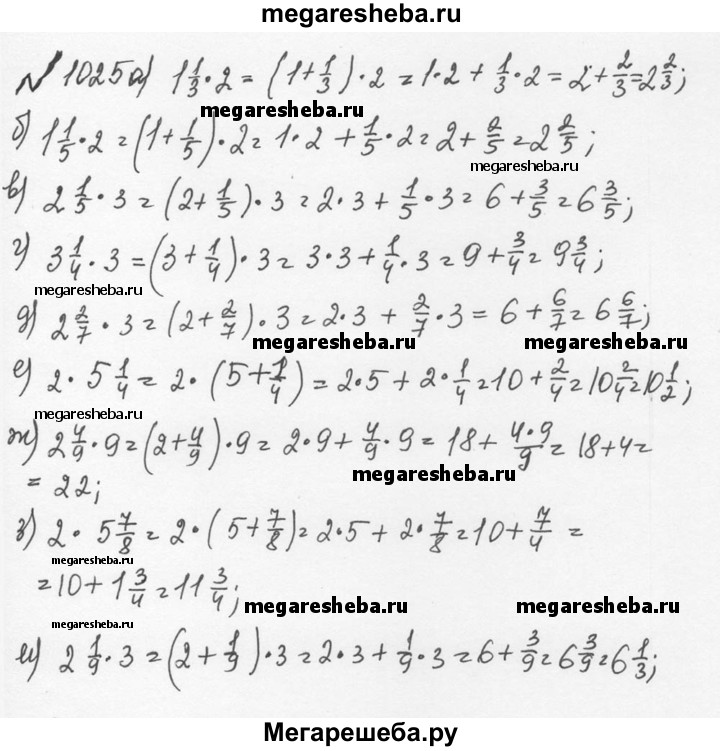 megaresheba.ru
№ 1025 а) 1 1/3 · 2 = (1 + 1/3) · 2 = 1 · 2 + 1/3 · 2 = 2 + 2/3 = 2 2/3;
megaresheba.ru
б) 1 1/5 · 2 = (1 + 1/5) · 2 = 1 · 2 + 1/5 · 2 = 2 + 2/5 = 2 2/5;
megaresheba.ru
в) 2 1/5 · 3 = (2 + 1/5) · 3 = 2 · 3 + 1/5 · 3 = 6 + 3/5 = 6 3/5;
г) 3 1/4 · 3 = (3 + 1/4) · 3 = 3 · 3 + 1/4 · 3 = 9 + 3/4 = 9 3/4;
megaresheba.ru
д) 2 2/7 · 3 = (2 + 2/7) · 3 = 2 · 3 + 2/7 · 3 = 6 + 6/7 = 6 6/7;
megaresheba.ru megaresheba.ru
е) 2 · 5 1/4 = 2 · (5 + 1/4) = 2 · 5 + 2 · 1/4 = 10 + 2/4 = 10 2/4 = 10 1/2;
megaresheba.ru
ж) 2 4/9 · 9 = (2 + 4/9) · 9 = 2 · 9 + 4/9 · 9 = 18 + 4·9/9 = 18 + 4 =
megaresheba.ru
= 22;
з) 2 · 5 7/8 = 2 · (5 + 7/8) = 2 · 5 + 2 · 7/8 = 10 + 7/4 =
megaresheba.ru
= 10 + 1 3/4 = 11 3/4;
megaresheba.ru megaresheba.ru
megaresheba.ru
и) 2 1/9 · 3 = (2 + 1/9) · 3 = 2 · 3 + 1/9 · 3 = 6 + 3/9 = 6 3/9 = 6 1/3;
Мегарешеба.ру